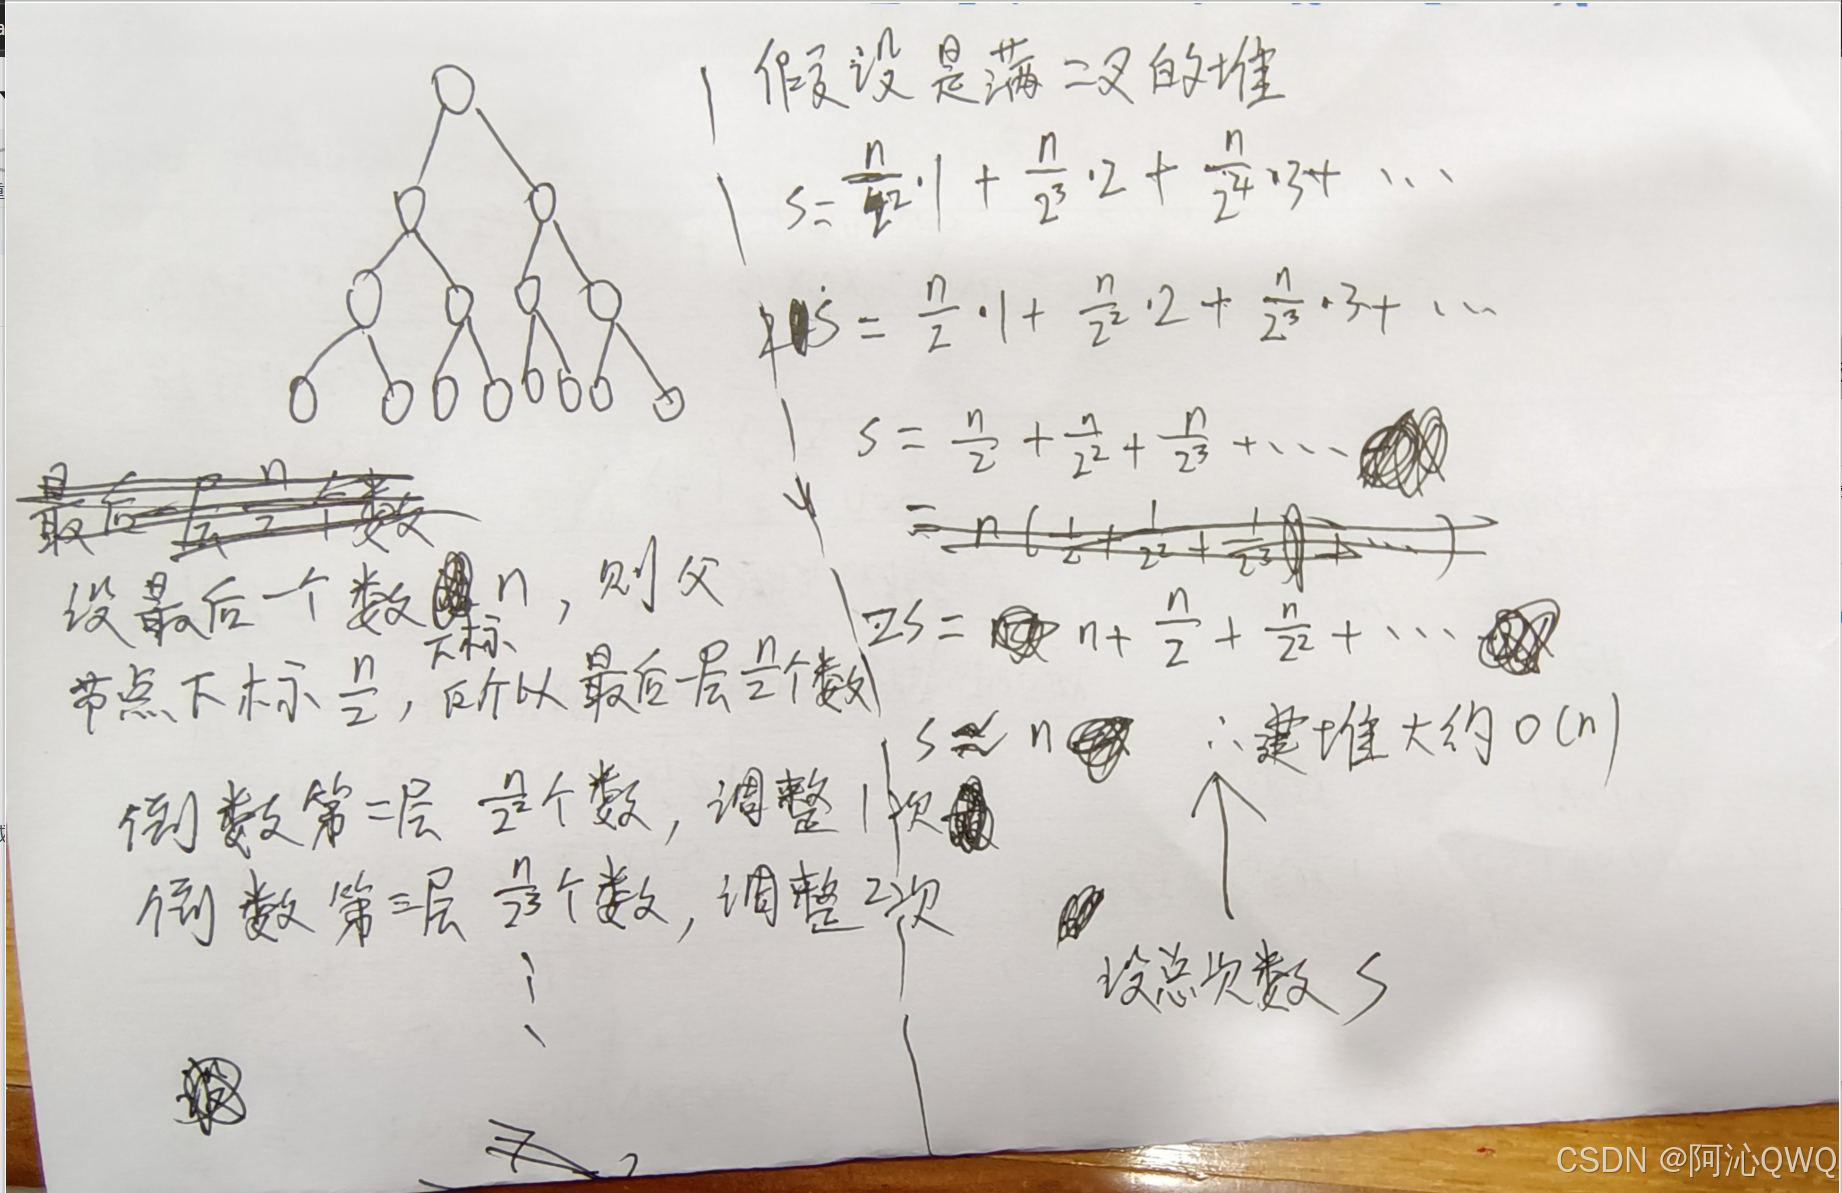 设最后一个数下标 n，则父
节点下标 n/2，所以最后一层 n/2 个数
倒数第二层 n/2² 个数，调整1次
倒数第三层 n/2³ 个数，调整2次
⋮
假设是满二叉的堆
S = n/2²·1 + n/2³·2 + n/2⁴·3 + ...
2S = n/2·1 + n/2²·2 + n/2³·3 + ...
S = n/2 + n/2² + n/2³ + ...
2S = n + n/2 + n/2² + ...
S ≈ n ∴建堆大约O(n)
设总次数 S
CSDN @阿沁QWQ